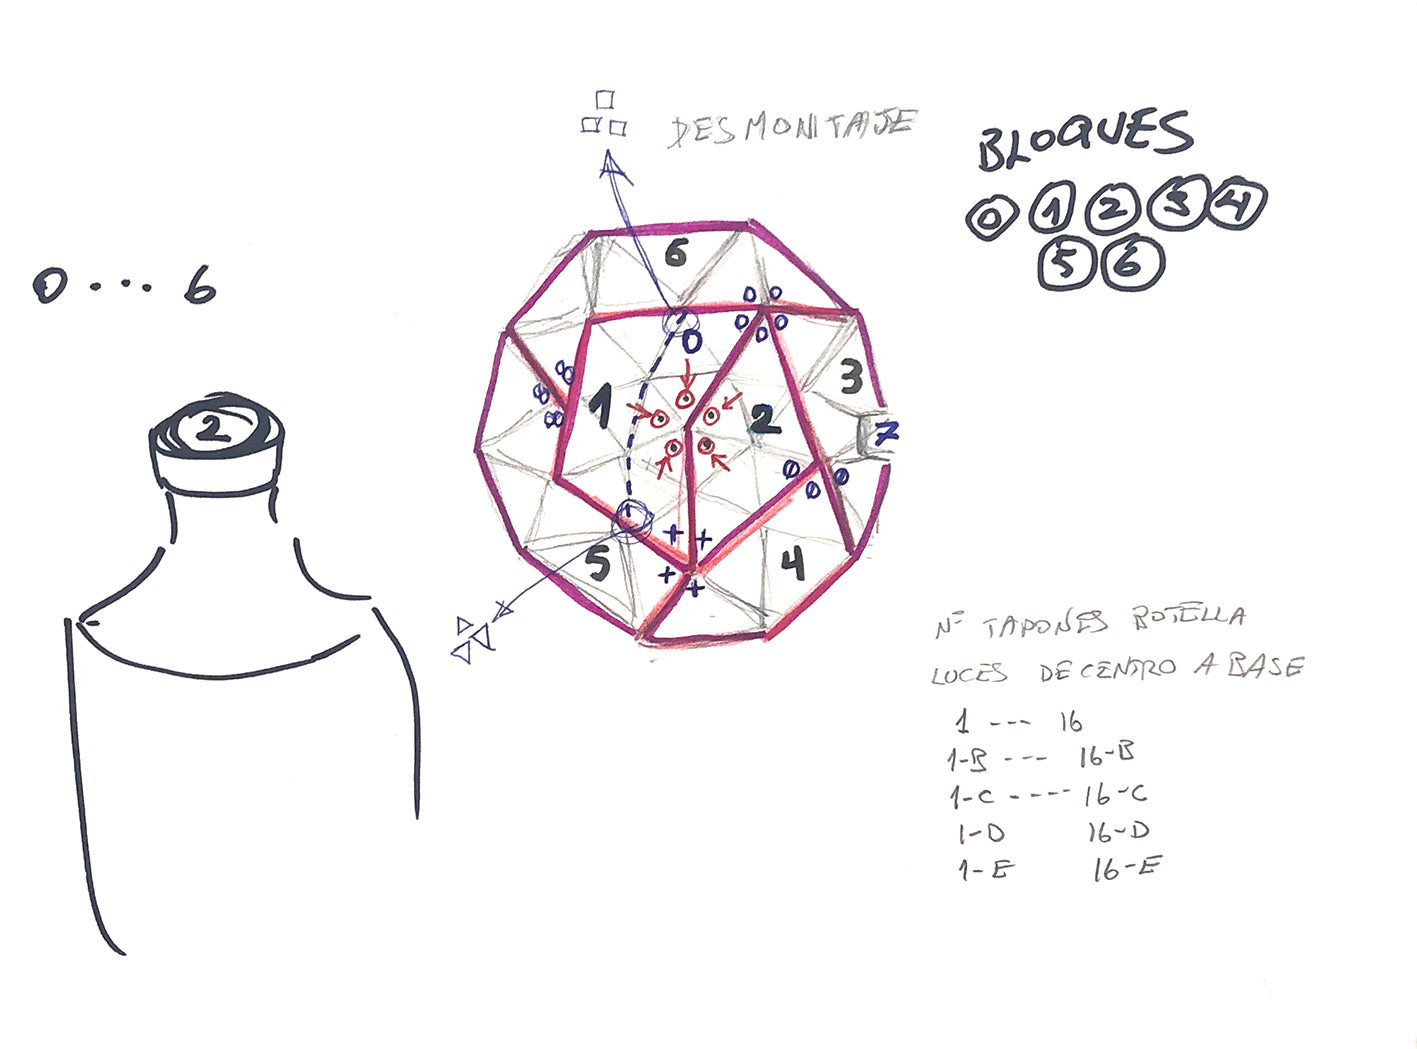 DESMONTAJE
BLOQUES
0 1 2 3 4
5 6
0 ... 6
2
6
0
1
2
3
7
5
4
Nº TAPONES BOTELLA
LUCES DE CENTRO A BASE
1 --- 16
1-B --- 16-B
1-C ---- 16-C
1-D 16-D
1-E 16-E